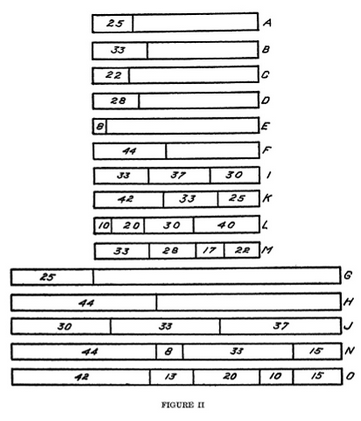 25 A
33 B
22 C
28 D
8 E
44 F
33 37 30 I
42 33 25 K
10 20 30 40 L
33 28 17 22 M
25 G
44 H
30 33 37 J
44 8 33 15 N
42 13 20 10 15 O
FIGURE II